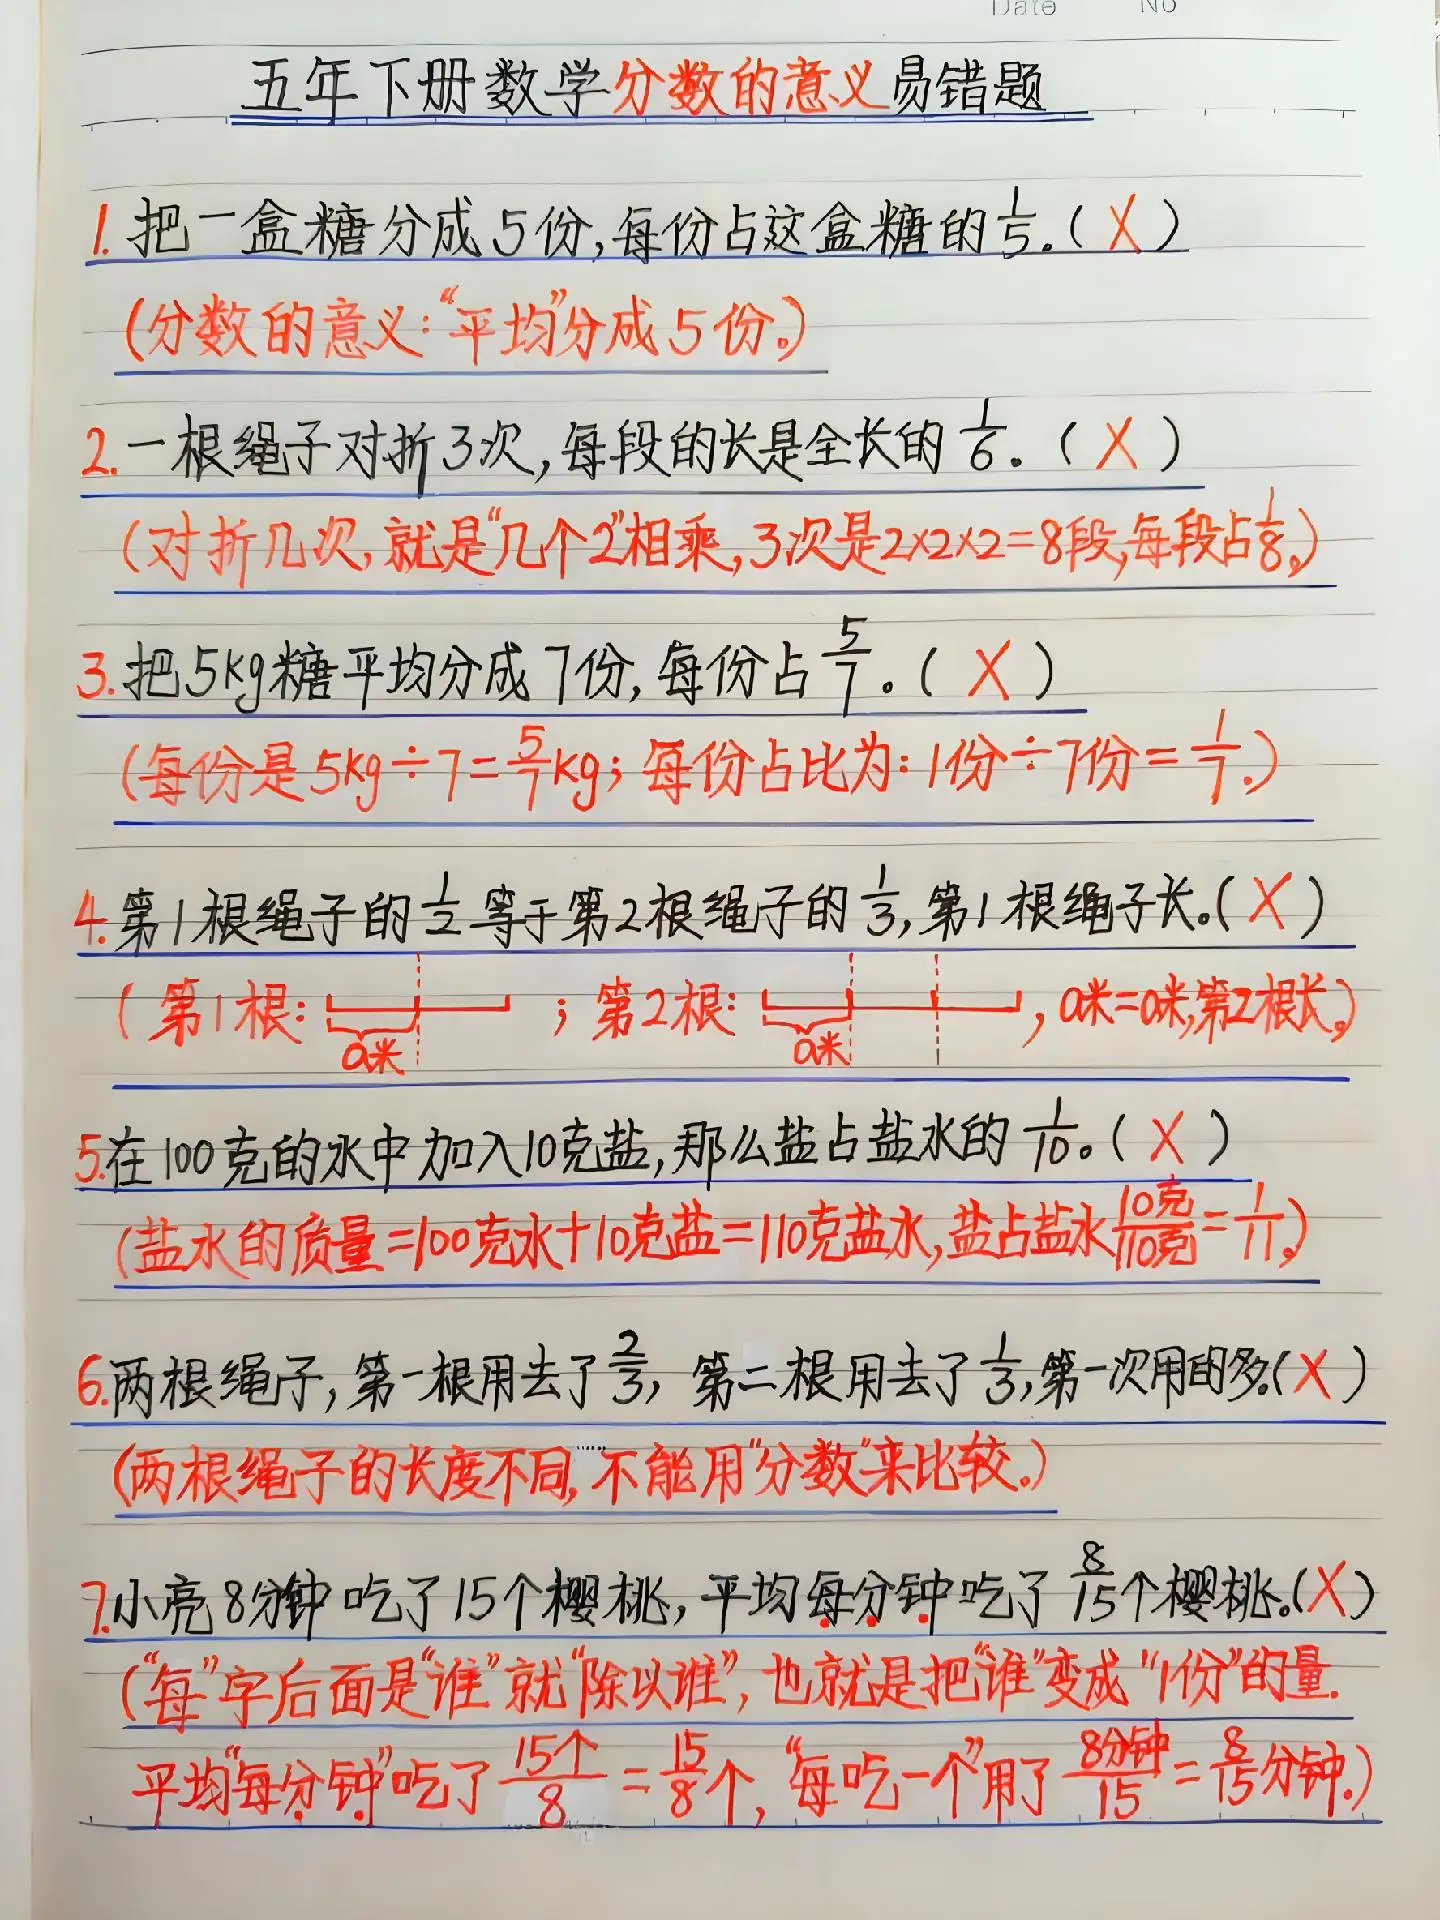 Date No
五年下册数学分数的意义易错题
1.把一盒糖分成5份,每份占这盒糖的1/5。(X)
(分数的意义:"平均"分成5份。)
2.一根绳子对折3次,每段的长是全长的1/6。(X)
(对折几次,就是"几个2"相乘,3次是2×2×2=8段,每段占1/8。)
3.把5kg糖平均分成7份,每份占5/7。(X)
(每份是5kg÷7=5/7kg;每份占比为:1份÷7份=1/7.)
4.第1根绳子的1/2等于第2根绳子的1/3,第1根绳子长。(X)
(第1根: ;第2根: ,a米=a米,第2根长。)
a米 a米
5.在100克的水中加入10克盐,那么盐占盐水的1/10。(X)
(盐水的质量=100克水+10克盐=110克盐水,盐占盐水10克/110克=1/11。)
6.两根绳子,第一根用去了2/3,第二根用去了1/3,第一次用的多.(X)
(两根绳子的长度不同,不能用"分数"来比较。)
7.小亮8分钟吃了15个樱桃,平均每分钟吃了8/15个樱桃.(X)
("每"字后面是"谁"就"除以谁",也就是把"谁"变成"1份"的量.
平均"每分钟"吃了15个/8=15/8个,"每吃一个"用了8分钟/15=8/15分钟.)